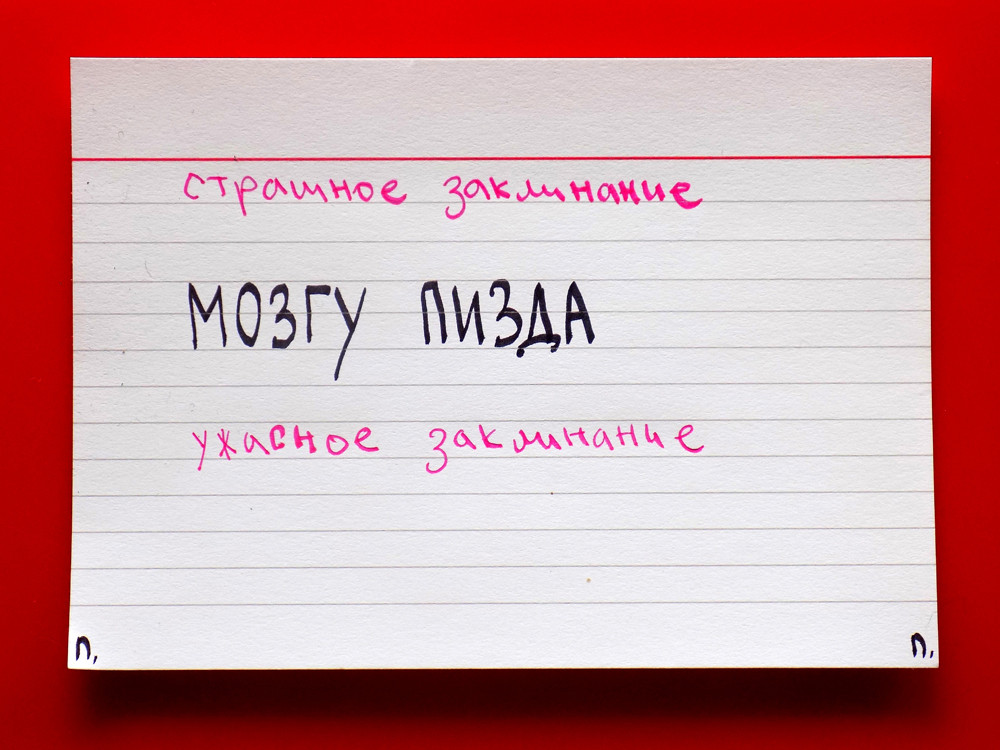 страшное заклинание
МОЗГУ ПИЗДА
ужасное заклинание
п. п.